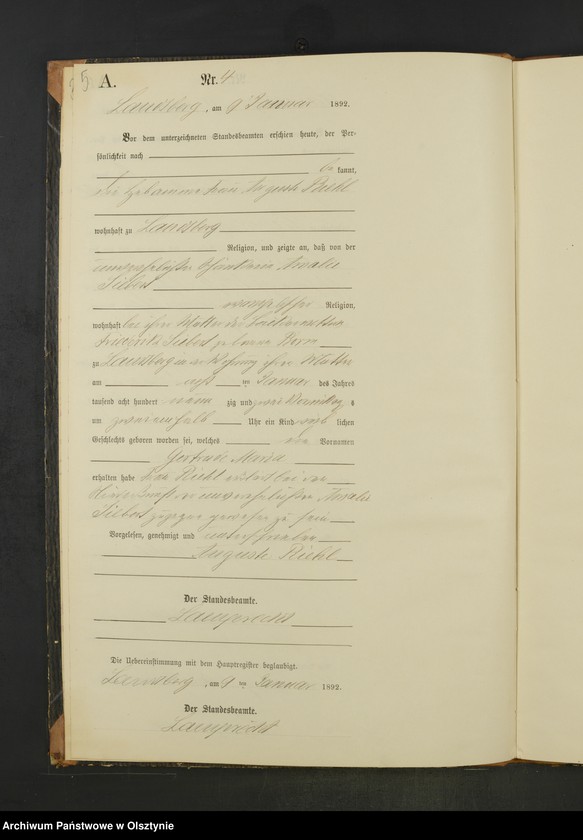 5. A. Nr. 4
Landsberg, am 9 Januar 1892.
Vor dem unterzeichneten Standesbeamten erschien heute, der Per-
sönlichkeit nach
be kannt,
die Hebamme Frau Auguste Riehl
wohnhaft zu Landsberg
Religion, und zeigte an, daß von der
unverehelichten Amalie
Siebert
evangelischer Religion,
wohnhaft bei ihrer Mutter der
Siebert geborene
zu Landsberg in der Wohnung ihrer Mutter
am ten Januar des Jahres
tausend acht hundert neun zig und zwei Vormittags
um zwei einhalb Uhr ein Kind weib lichen
Geschlechts geboren worden sei, welches die Vornamen
Gertrude Maria
erhalten habe Frau Riehl erklärt bei der
Niederkunft der unverehelichten Amalie
Siebert zugegen gewesen zu sein
Vorgelesen, genehmigt und unterschrieben
Auguste Riehl
Der Standesbeamte.
Lamprecht
Die Uebereinstimmung mit dem Hauptregister beglaubigt.
Landsberg, am 9 ten Januar 1892.
Der Standesbeamte.
Lamprecht
Archiwum Państwowe w Olsztynie